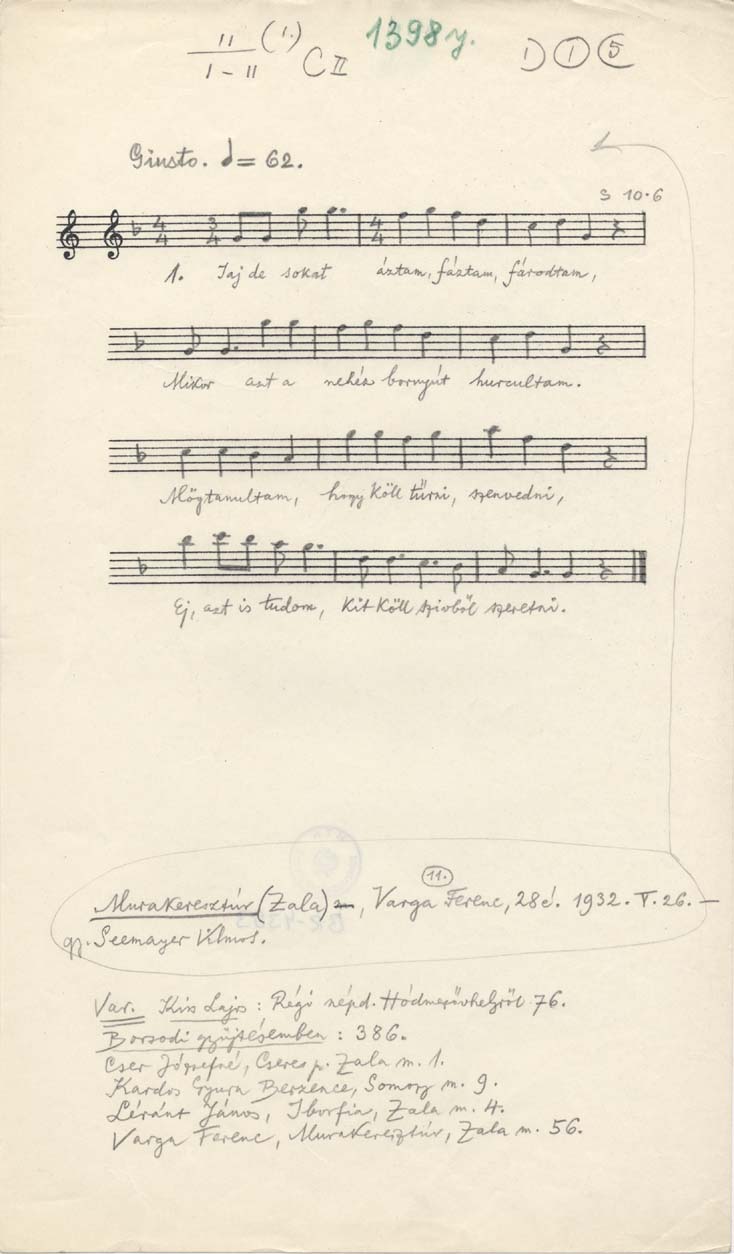 II (1.)
I-II CII 1398y. D 1 5
Giusto. = 62.
S 10.6
4 3 4
4 4 4
1. Jaj de sokat áztam, fáztam, fárodtam,
Mikor azt a nehéz bornyút hurcultam.
Mögtanultam, hogy köll tűrni, szenvedni,
Ej, azt is tudom, kit köll szivből szeretni.
11.
Murakeresztúr (Zala), Varga Ferenc, 28 é. 1932. V. 26.
gy. Seemayer Vilmos.
Var. Kiss Lajos: Régi népd. Hódmezővhelyről 76.
Borsodi gyűjtésemben: 386.
Cser Józsefné, Zala m. 1.
Kardos Gyura Berzence, Somogy m. 9.
János, Iborfia, Zala m. 4.
Varga Ferenc, Murakeresztúr, Zala m. 56.